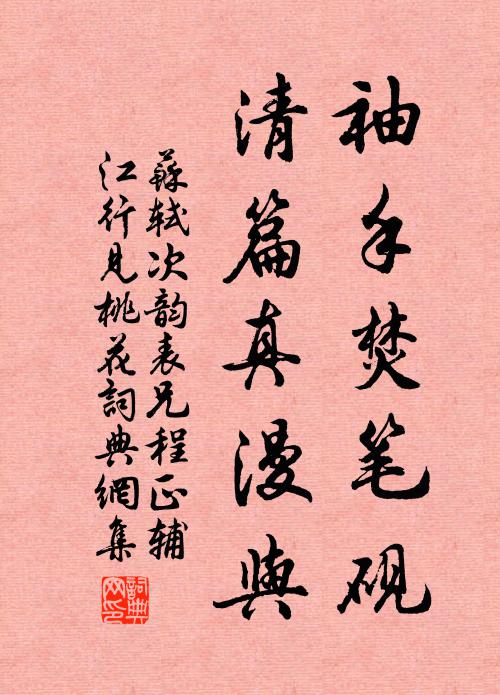 袖手焚笔砚
清篇真漫與
蘇轼次韵表兄程正辅
江行見桃花詞典網集
詞典网印